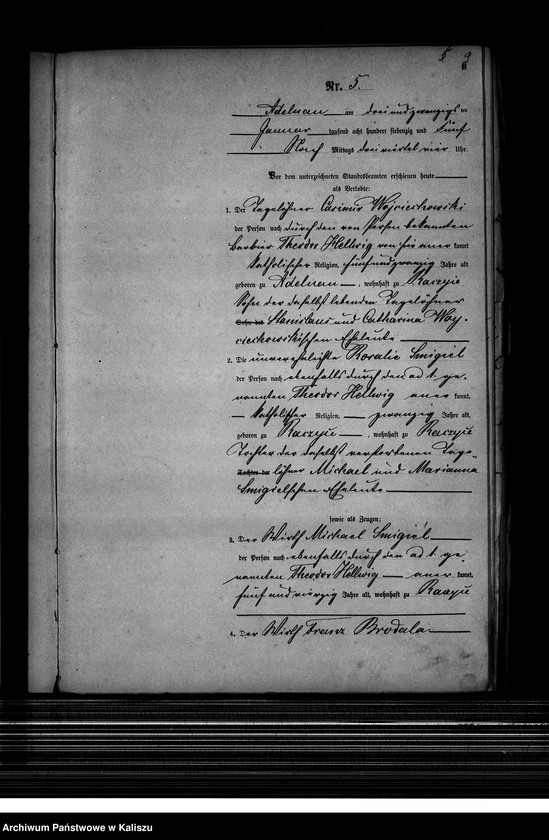 5 9
6
Nr. 5.
Adelnau am drei und zwanzigsten
Januar tausend acht hundert siebenzig und fünf
Nach Mittags drei viertel vier Uhr.
Vor dem unterzeichneten Standesbeamten erschienen heute
als Verlobte:
1. Der Tagelöhner Casimir Wojciechowski
der Person nach durch den von Person bekannten
Barbier Theodor Hellwig von hier aner kannt
katholischer Religion, fünf und zwanzig Jahre alt
geboren zu Adelnau, wohnhaft zu Raczyce
Sohn der daselbst lebenden Tagelöhner
Sohn des Stanislaus und Catharina Woj-
ciechowskischen Eheleute
2. Die unverehelichte Rosalie Smigiel
der Person nach ebenfalls durch den ad 1. ge-
nannten Theodor Hellwig aner kannt,
katholischer Religion, zwanzig Jahre alt,
geboren zu Raczyce, wohnhaft zu Raczyce
Tochter der daselbst verstorbenen Tage-
Tochter des löhner Michael und Marianna
Smigielschen Eheleute
sowie als Zeugen:
3. Der Wirth Michael Smigiel
der Person nach ebenfalls durch den ad 1. ge-
nannten Theodor Hellwig aner kannt,
fünf und vierzig Jahre alt, wohnhaft zu Raczyce
4. Der Wirth Franz Brodala
Archiwum Państwowe w Kaliszu